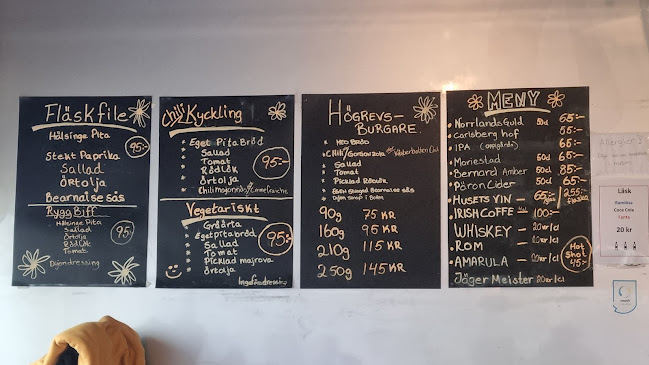 Fläskfile
Hälsinge Pita
95:-
Stekt Paprika
Sallad
Örtolja
Bearnaise sås
Rygg Biff
Hälsinge Pita
Sallad
Örtolja
Rödlök
Tomat
95:-
Dijondressing
Chili Kyckling
Eget Pita Bröd
Sallad
Tomat
Rödlök
Örtolja
Chilimajonnäs
95:-
Vegetariskt
Gröärta
Eget pita bröd
Sallad
Tomat
Picklad majrova
Örtolja
95:-
Högrevs-
Burgare
Med Bröd
Chili/Gorgonzola
Sallad
Tomat
Picklad Rödlök
90g 75 KR
160g 95 KR
210g 115 KR
250g 145 KR
MENY
Norrlands Guld 50cl 65:-
Carlsberg hof 55:-
IPA 65:-
Mariestad 50cl 65:-
Bernard Amber 50cl 85:-
Päron Cider 50cl 65:-
Husets Vin - 65:- 255:-
Irish Coffe - 100:-
Whiskey - 20kr/cl
Rom - 20kr/cl
Amarula - 20kr/cl
Hot Shot 45:-
Jäger Meister 20kr/cl
Allergier?
Läsk
Ramlösa
Coca Cola
Fanta
20 kr